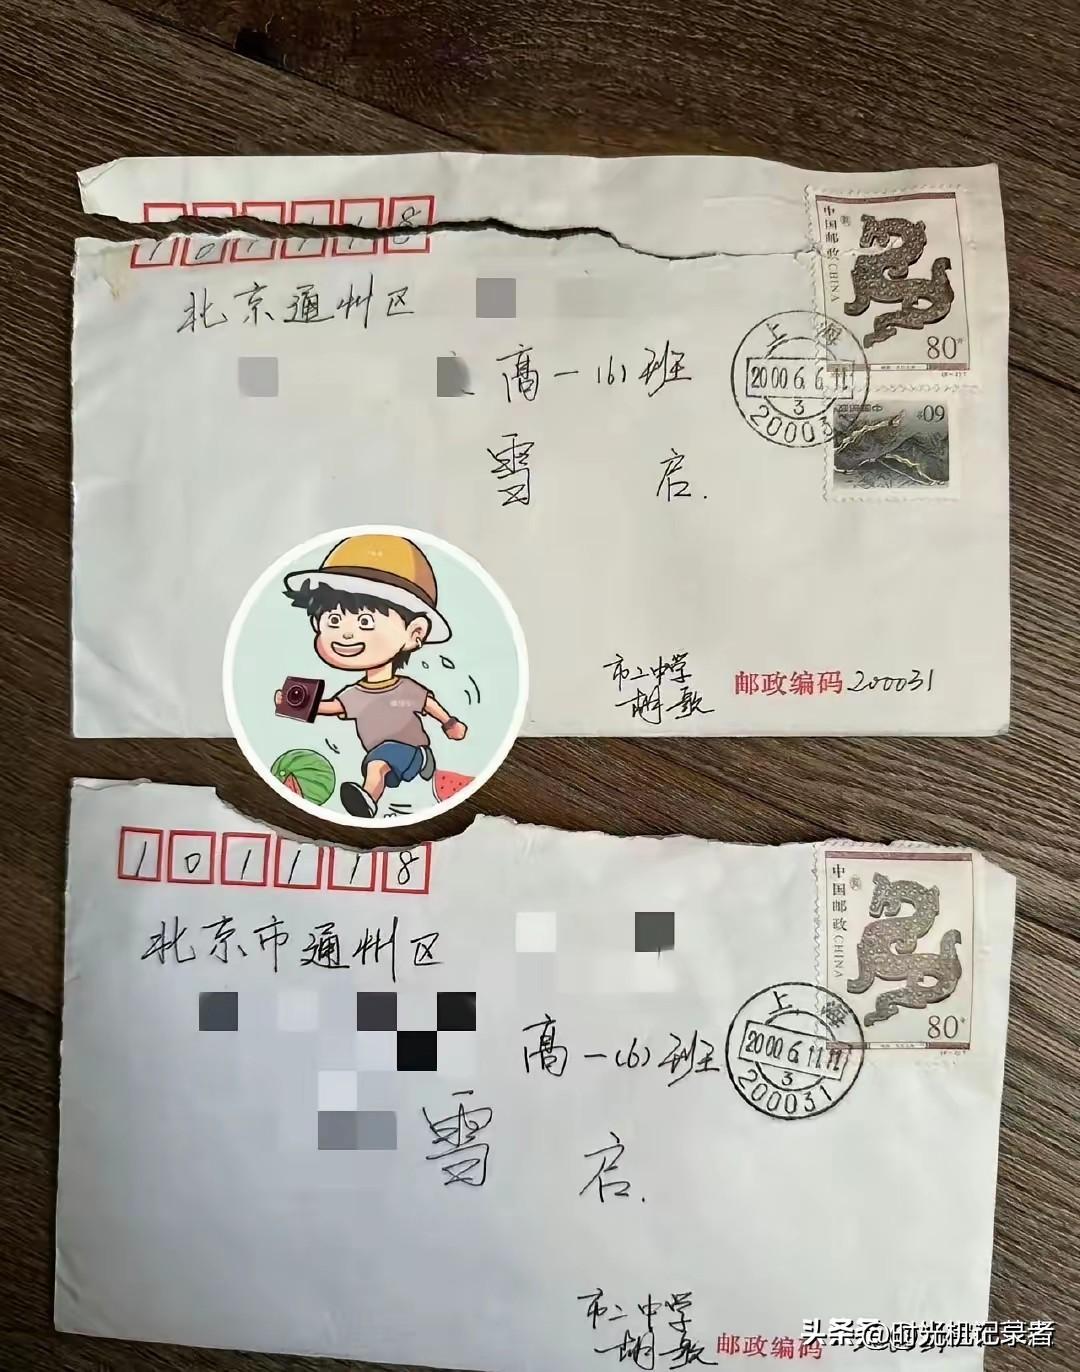 101118
北京通州区
高一(6)班
雪 启.
市二中学
胡歌
邮政编码 200031
中国邮政 CHINA
80分
上海
2000.6.6.11
3
20003
60分
101118
北京市通州区
高一(6)班
雪 启.
市二中学
胡歌
邮政编码
中国邮政 CHINA
80分
上海
2000.6.11.11
3
200031
头条 @时光机记录者